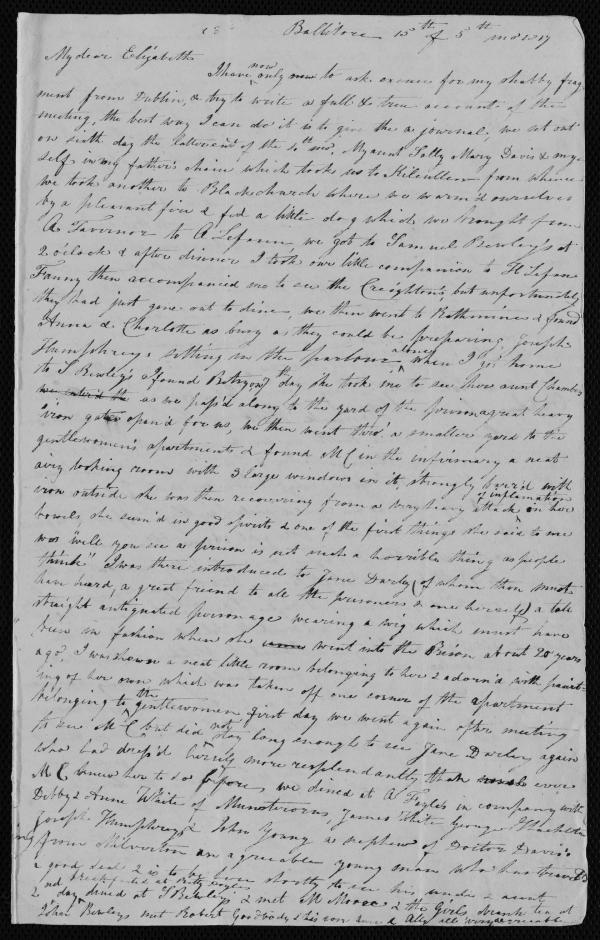 Ballitore 15th of 5th mo 1817
My dear Elizabeth
I have now only now to ask excuse for my shabby frag
ment from Dublin, & try to write a full & true account of the
meeting, the best way I can do it is to give thee a journal; we set out
on sixth day the latter end of the 4th mo. My aunt Sally Mary Davis & my-
self in my father's chaise which took us to Kilcullen from whence
we took another to Blackchurch where we warm'd ourselves
by a pleasant fire & fed a little dog which we brought from
A Tavernor to A Lefanu, we got to Samuel Bewley's at
2 o'clock & after dinner I took our little companion to H Lefanu
Fanny then accompanied me to see the Creightons, but unfortunately
they had just gone out to dine, we then went to Rathmines & found
Anna & Charlotte as busy as they could be preparing, Joseph
Humphreys sitting in the parlour alone, when I got home
to S Bewley's I found Betsy, 7th day she took me to see thro' aunt Chambers
we enter'd the as we pass'd along to the yard of the prison a great heavy
iron gate open'd for us, we then went thro' a smaller yard to the
gentlewomen's apartments & found M C in the infirmary a neat
airy looking room with 3 large windows in it, strongly barr'd with
iron outside she was then recovering from a very heavy attack of inflamation in her
bowels, she seem'd in good spirits & one of the first things she said to me
was "well you see a prison is not such a horrible thing as people
think" I was there introduced to Jane Darley (of whom thou must
have heard, a great friend to all the prisoners & one herself) a tall
straight antiquated personage wearing a wig which must have
been in fashion when she came went into the Prison about 20 years
ago, I was shown a neat little room belonging to her & adorn'd with paint-
ing of her own which was taken off one corner of the apartment
belonging to the gentlewomen first day we went again after meeting
to see M C but did not stay long enough to see Jane Darley again
who had dress'd herself more resplendantly than usual ever
M C knew her to do before, we dined at A Fayle's in company with
Debby & Anne White of Munsterconn, James White George Shackleton
Joseph Humphreys & John Young a nephew of Doctor Davis's
from Milverton an agreeable young man who has travell'd
a good deal & is to be over shortly to see his uncle & aunt
2nd day dined at S Bewley's & met M Moore & the Girls drank tea at
John Bewleys met Robert Goodbody & his son
2nd breakfasted at Betty Fayles